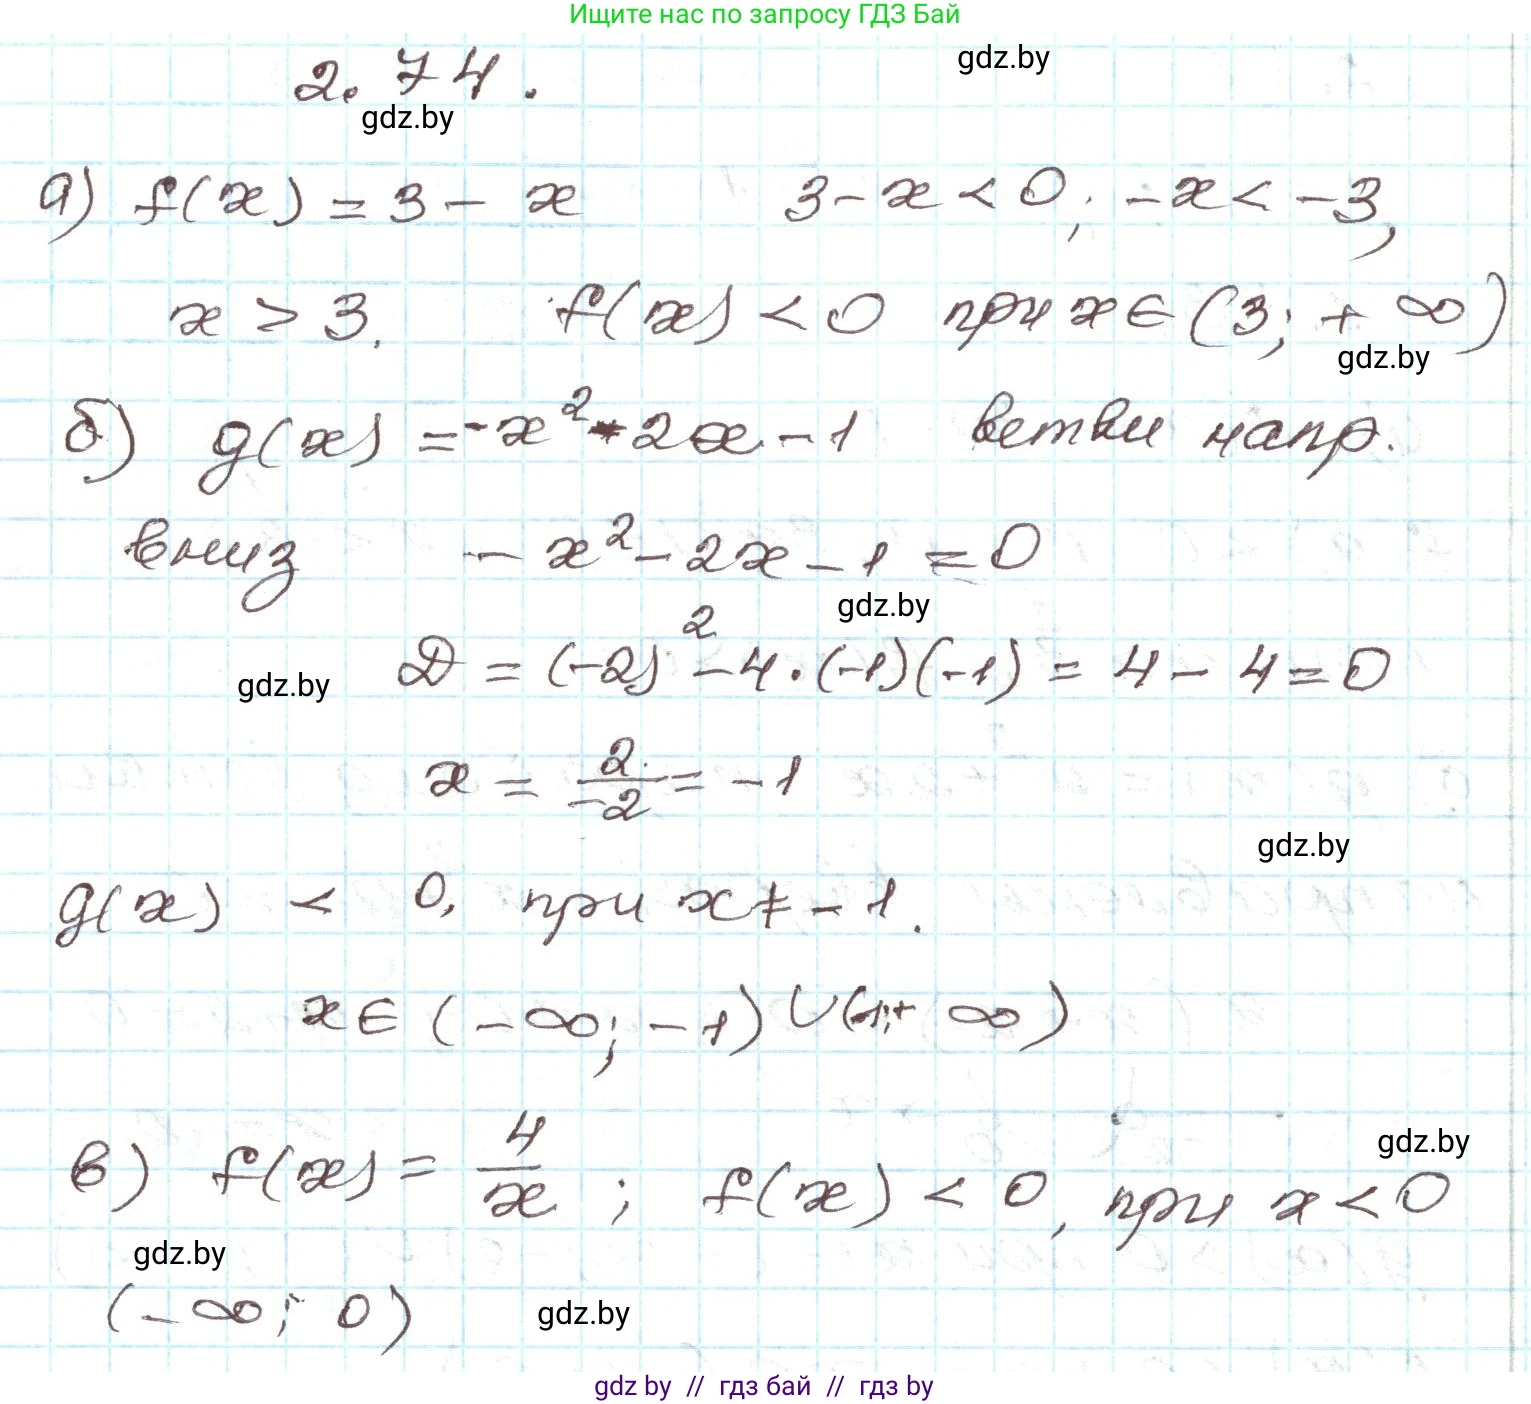 Ищите нас по запросу ГДЗ Бай
2.74.
gdz.by
gdz.by
а) f(x) = 3 - x 3 - x < 0; -x < -3,
x > 3. f(x) < 0 при x ∈ (3; + ∞)
gdz.by
б) g(x) = -x² - 2x - 1 ветви напр.
вниз - x² - 2x - 1 = 0
gdz.by
D = (-2)² - 4·(-1)(-1) = 4 - 4 = 0
gdz.by
x = 2/-2 = -1
gdz.by
g(x) < 0, при x ≠ -1.
x ∈ (-∞; -1) ∪ (-1; + ∞)
gdz.by
в) f(x) = 4/x ; f(x) < 0, при x < 0
gdz.by
(-∞; 0)
gdz.by
gdz by // гдз бай // гдз by